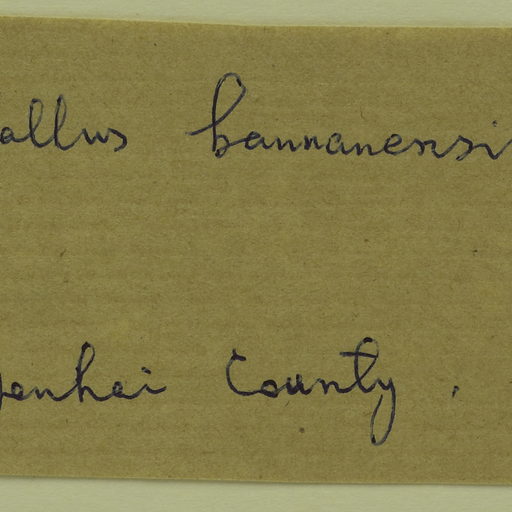 allus bannanensi
enhai County .